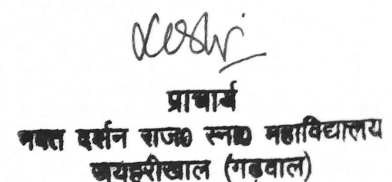 प्राचार्य
भक्त दर्शन राज० स्ना० महाविद्यालय
जयहरीखाल (गढ़वाल)